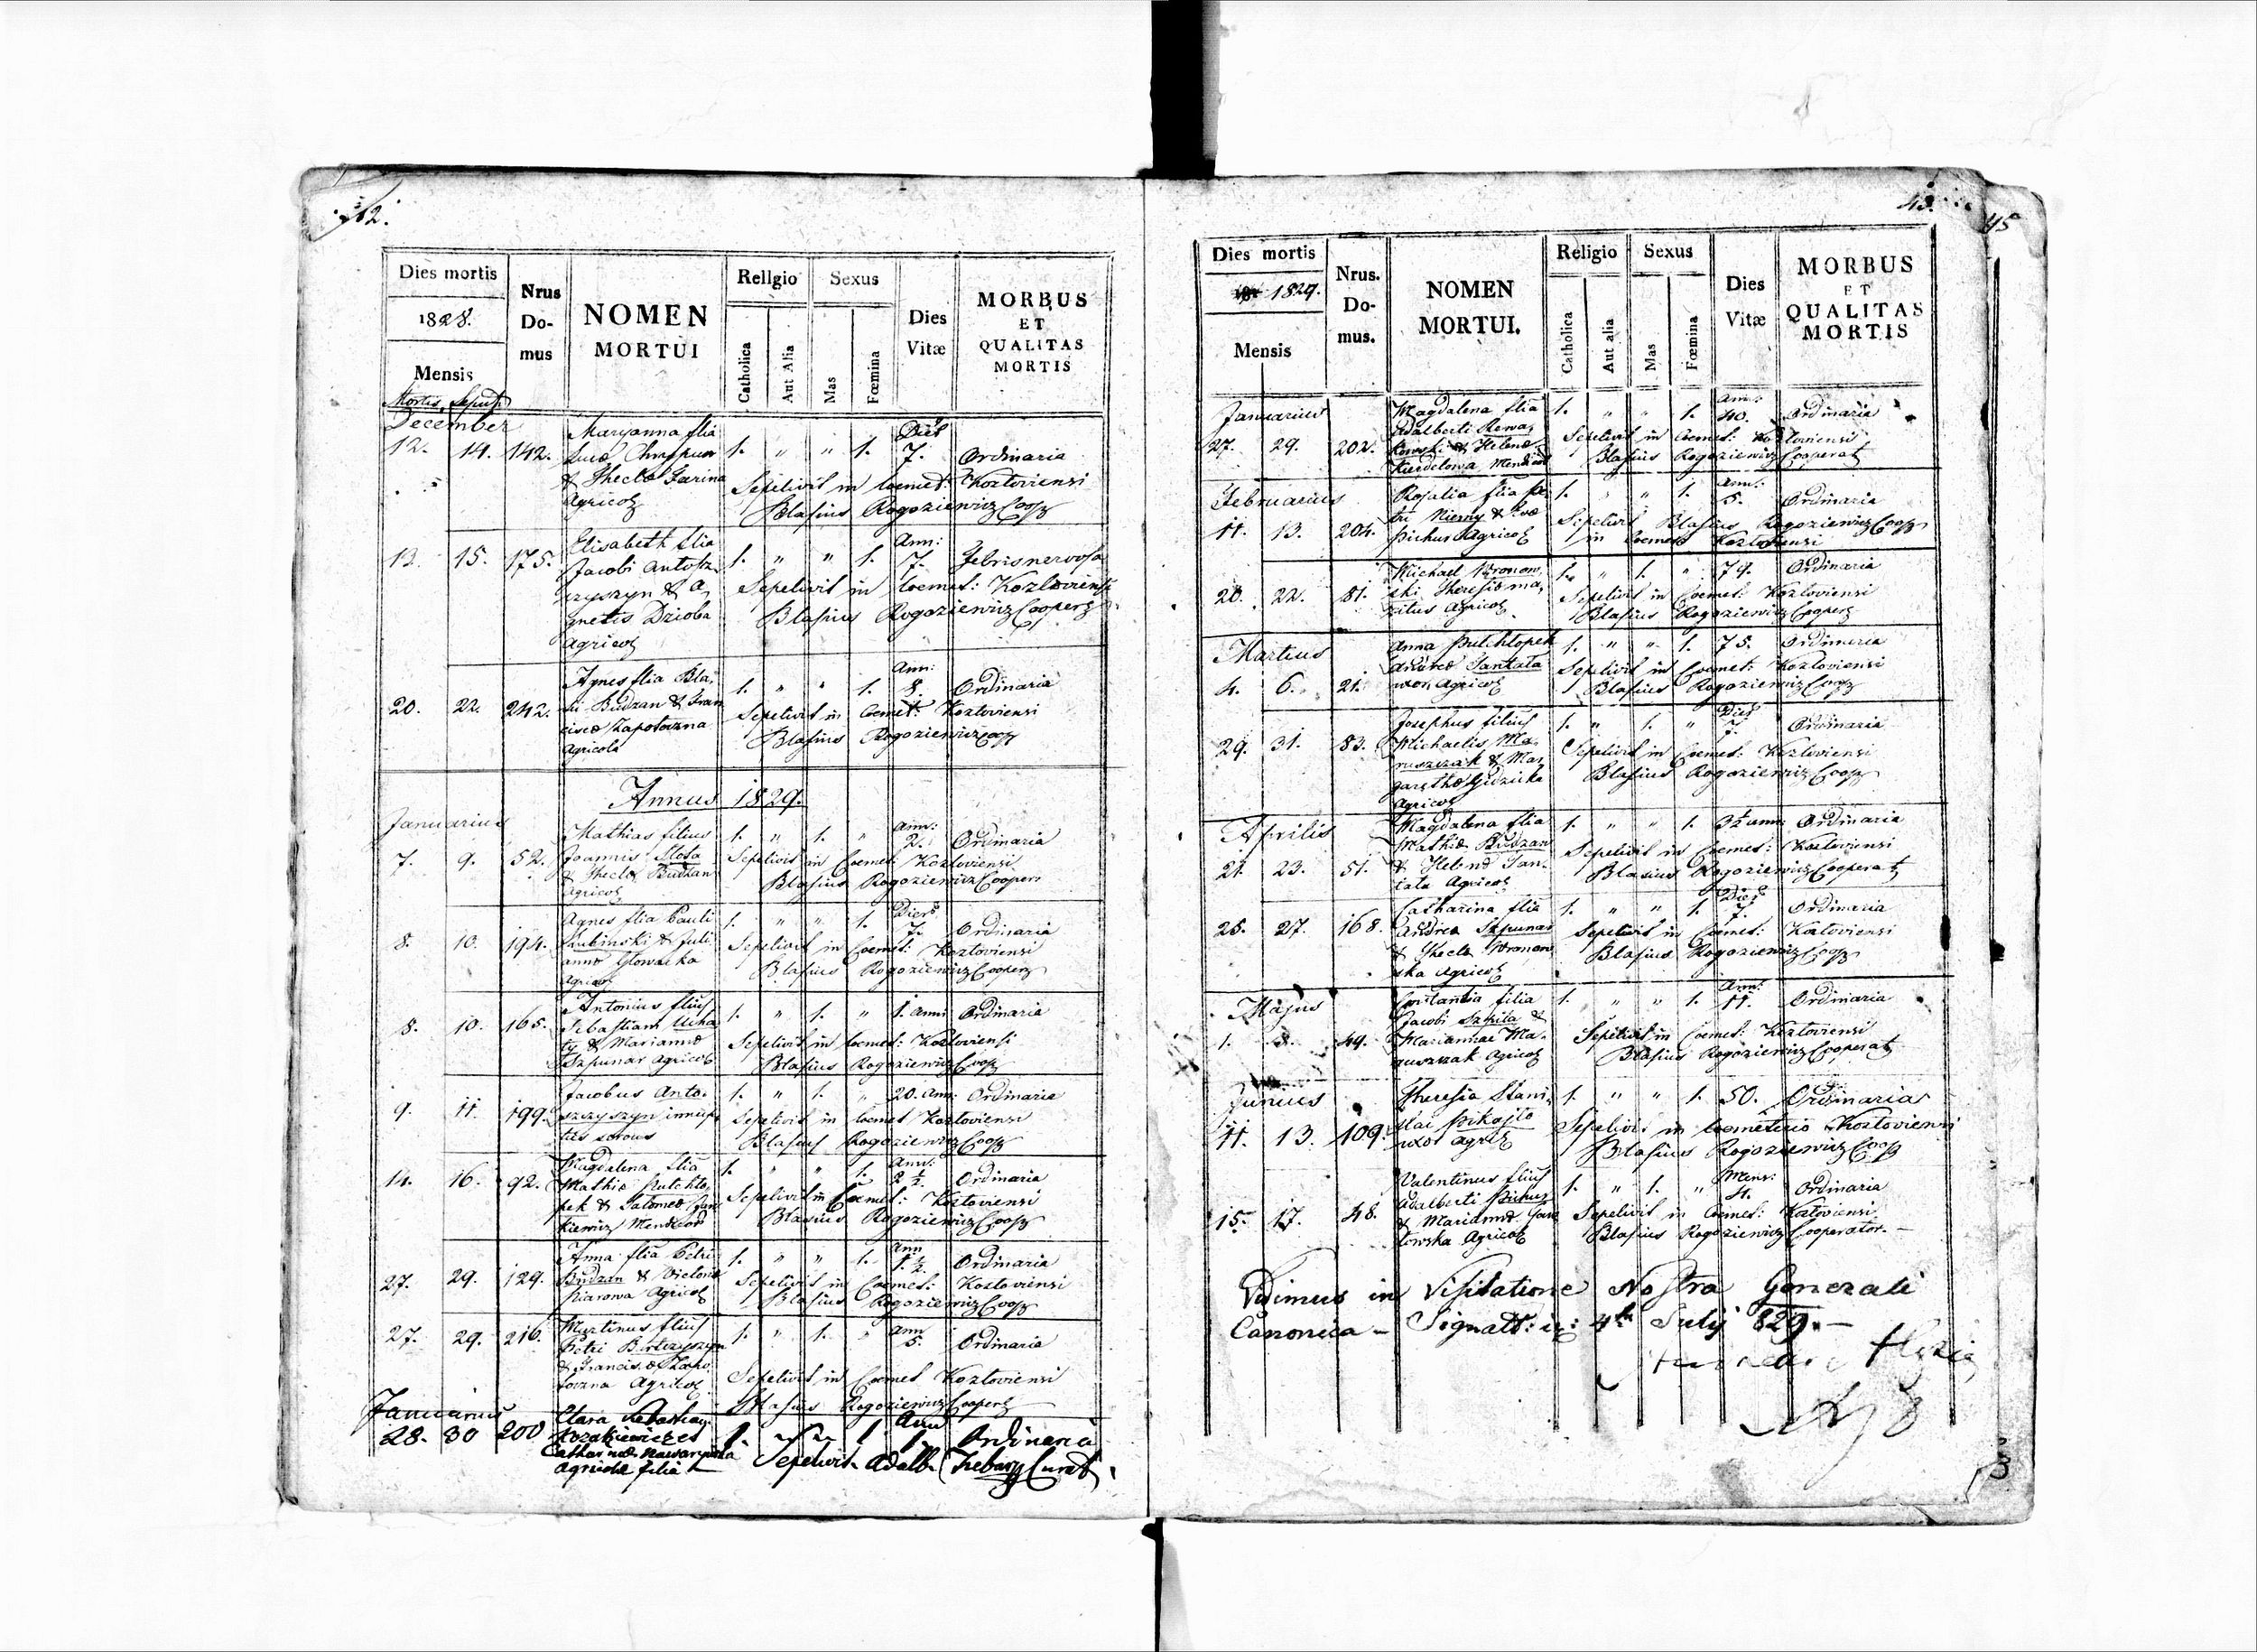 42.
Dies mortis
1828.
Mensis
Mortis Sepult:
Nrus Do- mus
NOMEN MORTUI
Religio
Catholica
Aut Alia
Sexus
Mas
Fœmina
Dies Vitæ
MORBUS ET QUALITAS MORTIS
December
12. 14. 142. Maryanna filia 1. " " 1. Dies 7. Ordinaria
& Theclæ
Agricol
Sepelivit in Coemet: Kozloviensi
Blasius Rogoziewicz Coop
13. 15. 175. Elisabeth filia 1. " " 1. Ann: 7. Febris nervosa
Jacobi Antosz
czyszyn & A,
gnetis Dzioba
Agricol
Sepelivit in Coemet: Kozloviensi
Blasius Rogoziewicz Cooper
20. 22. 242. Agnes filia Bla, 1. " " 1. Ann: 8. Ordinaria
sii Budzan & Fran
ciscæ Zapotoczna
Agricola
Sepelivit in Coemet: Kozloviensi
Blasius Rogoziewicz Coop
Annus 1829.
Januarius
7. 9. 52. Mathias filius 1. " 1. " Ann: 2. Ordinaria
Joannis
& Theclæ Budzan
Agricol
Sepelivit in Coemet: Kozloviensi
Blasius Rogoziewicz Cooper
8. 10. 194. Agnes filia Pauli 1. " " 1. Dies 7. Ordinaria
& Juli
annæ Glowacka
Agricol
Sepelivit in Coemet: Kozloviensi
Blasius Rogoziewicz Cooper
8. 10. 165. Antonius filius 1. " 1. " 1. Ann: Ordinaria
Sebastiani
ty & Mariannæ
Szpunar Agricol
Sepelivit in Coemet: Kozloviensi
Blasius Rogoziewicz Coop
9. 11. 199. Jacobus Anto, 1. " 1. " 20. Ann: Ordinaria
szczyszyn
Sepelivit in Coemet Kozloviensi
Blasius Rogoziewicz Coop
14. 16. 92. Magdalena filia 1. " " 1. Ann: 2 1/2. Ordinaria
Mathiæ Putchlo,
pek & Salomeæ Jan
kiewicz
Sepelivit in Coemet: Kozloviensi
Blasius Rogoziewicz Coop
27. 29. 129. Anna filia Petri 1. " " 1. Ann 1 1/2. Ordinaria
Budzan &
Agricol
Sepelivit in Coemet: Kozloviensi
Blasius Rogoziewicz Coop
27. 29. 216. Martinus filius 1. " 1. " Ann 5. Ordinaria
Petri
& Franciscæ Zapo
toczna Agricol
Sepelivit in Coemet Kozloviensi
Blasius Rogoziewicz Cooper
Januarius
28. 30 200 Clara Sebastian 1. 1 Ann 1. Ordinaria
Kozakiewicz et
Catharinæ
Agricolæ filia
Sepelivit Adalb. Curat
43.
45
Dies mortis
1829.
Mensis
Nrus. Do- mus.
NOMEN MORTUI.
Religio
Catholica
Aut alia
Sexus
Mas
Fœmina
Dies Vitæ
MORBUS ET QUALITAS MORTIS
Januarius
27. 29. 202. Magdalena filia 1. " " 1. Ann: 40. Ordinaria
Adalberti Rewa,
kowski & Helenæ
Sepelivit in Coemet: Kozloviensi
Blasius Rogoziewicz Cooperat
Februarius
11. 13. 204. Rosalia filia Pe 1. " " 1. Ann: 5. Ordinaria
tri Niemy & Evæ
Pichur Agricol
Sepelivit Blasius Rogoziewicz Coop
in Coemet Kozloviensi
20. 22. 81. Michael Wronow, 1. " 1. " 79. Ordinaria
ski Theresiæ ma,
ritus Agricol
Sepelivit in Coemet: Kozloviensi
Blasius Rogoziewicz Cooper
Martius
4. 6. 21. Anna Putchlopek 1. " " 1. 75. Ordinaria
Andreæ Santata
uxor Agricol
Sepelivit in Coemet: Kozloviensi
Blasius Rogoziewicz Coop
29. 31. 83. Josephus filius 1. " 1. " Dies 7. Ordinaria
Michaelis Ma,
ruszczak & Mar
garethæ
Agricol
Sepelivit in Coemet: Kozloviensi
Blasius Rogoziewicz Coop
Aprilis
21. 23. 51. Magdalena filia 1. " " 1. 3 1/2 ann: Ordinaria
Mathiæ Budzan
& Helenæ San,
tata Agricol
Sepelivit in Coemet: Kozloviensi
Blasius Rogoziewicz Cooperat
25. 27. 168. Catharina filia 1. " " 1. Dies 7. Ordinaria
Andreæ Szpunar
& Thecla Wronow
ska Agricol
Sepelivit in Coemet: Kozloviensi
Blasius Rogoziewicz Coop
Majus
1. 3. 49. Constantia filia 1. " " 1. Ann: 11. Ordinaria
Jacobi Szkila &
Mariannae Ma,
ruszczak Agricol
Sepelivit in Coemet: Kozloviensi
Blasius Rogoziewicz Cooperat
Junius
11. 13. 109. Theresia Stani, 1. " " 1. 50. Ordinaria
slai Pikajlo
uxor Agric
Sepelivit in Coemeterio Kozloviensi
Blasius Rogoziewicz Coop
15. 17. 48. Valentinus filius 1. " 1. " Mens: 4. Ordinaria
Adalberti Pichur
& Mariannæ
lowska Agricol
Sepelivit in Coemet: Kozloviensi
Blasius Rogoziewicz Cooperator.
Vidimus in Visitatione Nostra Generali
Canonica – Signatt: 4ta Julij 829. –